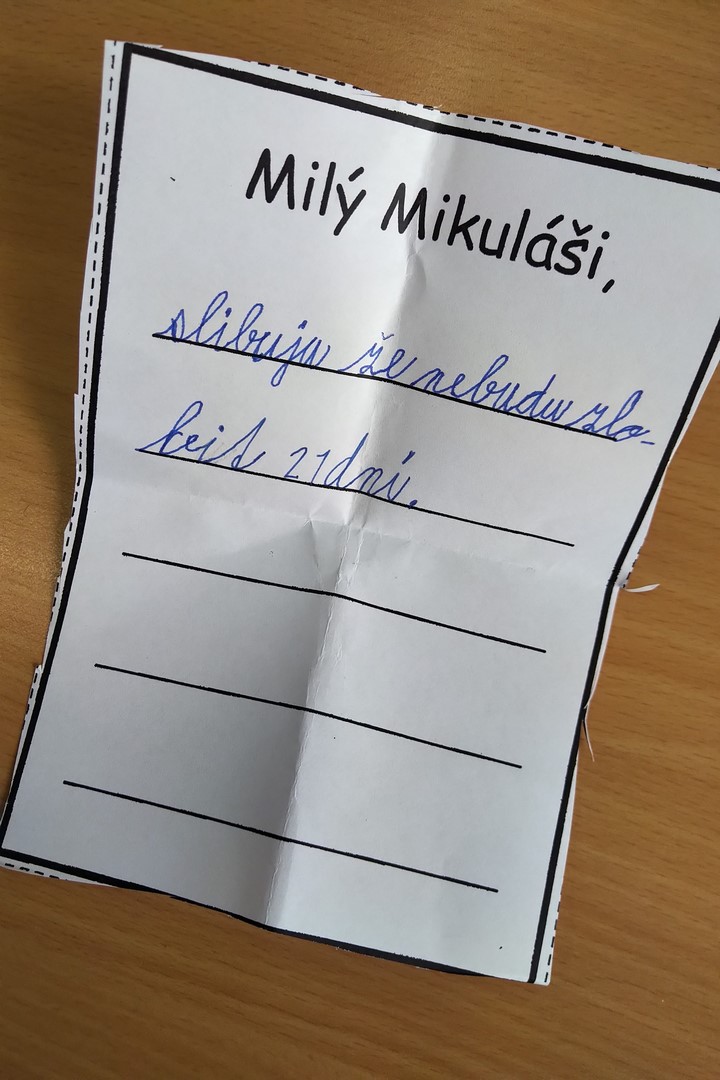 Milý Mikuláši,
slibuju že nebudu zlo-
beit 21dní.